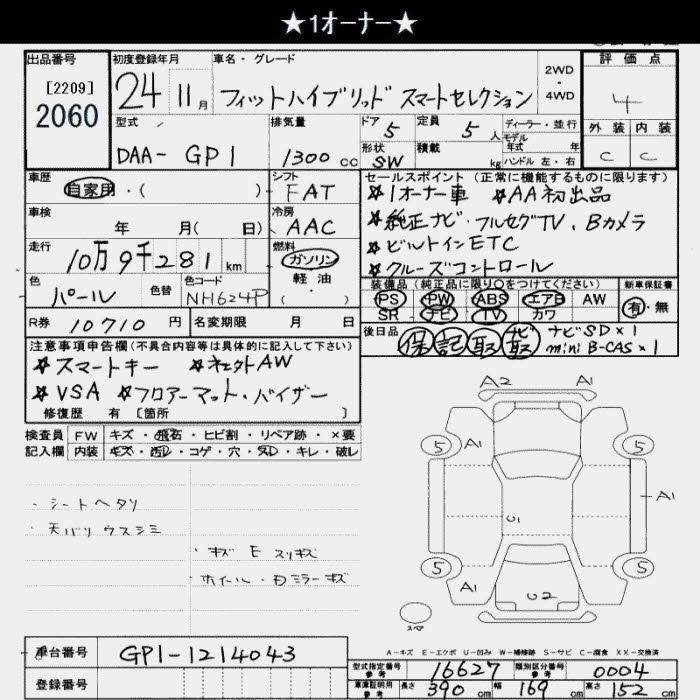 ★1オーナー★
出品番号
[2209]
2060
初度登録年月
24 11月
車名・グレード
フィットハイブリッド スマートセレクション
2WD
・
4WD
評価点
4
外装 内装
C C
型式
DAA-GP1
排気量
1300cc
ドア
5
形状
SW
定員
5人
積載
kg
ディーラー・並行
モデル
年式 年
ハンドル 左・右
車歴
自家用・( )
シフト
FAT
車検
年 月( 日)
冷房
AAC
走行
10万9千281km
燃料
ガソリン
軽油
( ・ )
色
パール
色替
色コード
NH624P
R券
10710円
名変期限 月 日
セールスポイント(正常に機能するものに限ります)
☆1オーナー車 ☆AA初出品
☆純正ナビ・フルセグTV、Bカメラ
☆ビルトインETC
☆クルーズコントロール
装備品(純正品に限り○をつけてください)
PS PW ABS エアB AW
SR ナビ TV カワ
新車保証書
有・無
後日品
保 記 取 ナビ取 ナビSD×1
mini B-CAS×1
注意事項申告欄(不具合内容等は具体的に記入して下さい)
☆スマートキー ☆ネェクトAW
☆VSA ☆フロアーマット・バイザー
修復歴 有 [箇所 ]
検査員 FW キズ・飛石・ヒビ割・リペア跡・×要
記入欄 内装 キズ・汚レ・コゲ・穴・スレ・キレ・破レ
・シートヘタリ
・天バリウスシミ
・キズ E スリキズ
・ホイール・Dミラーキズ
A2 A1
5 A1 5
A1
U1
5 5
A1
U2
スペア
A-キズ E-エクボ U-凹み W-補修跡 S-サビ C-腐食 XX-交換済
車台番号
GP1-1214043
登録番号
型式指定番号
参考
16627
類別区分番号
参考
0004
車庫証明用
参考
長さ 390cm 幅 169cm 高さ 152cm